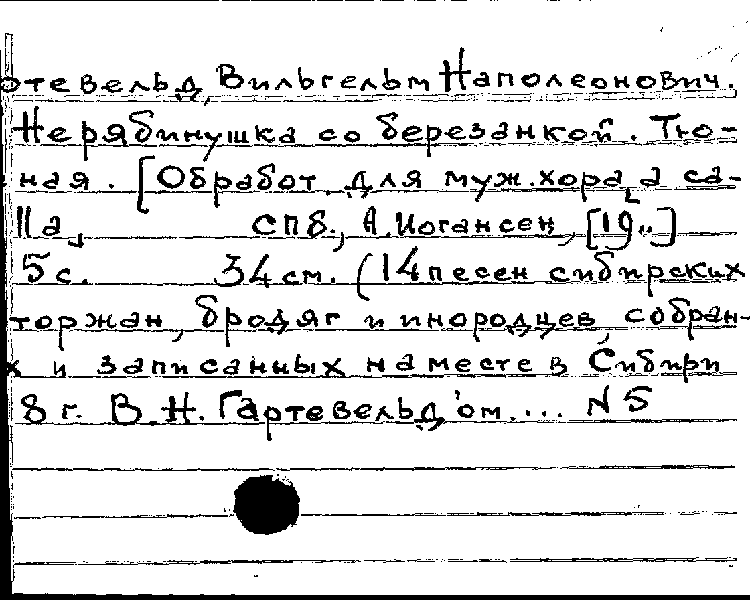 ртевельд, Вильгельм Наполеонович.
Не рябинушка со березанкой. Тю-
ная. [Обработ. для муж. хора a ca-
lla,] СПб., А. Иогансен, [19..]
5 с. 34 см. (14 песен сибирских
торжан, бродяг и инородцев, собран-
х и записанных на месте в Сибири
8 г. В. Н. Гартевельд'ом.... N 5